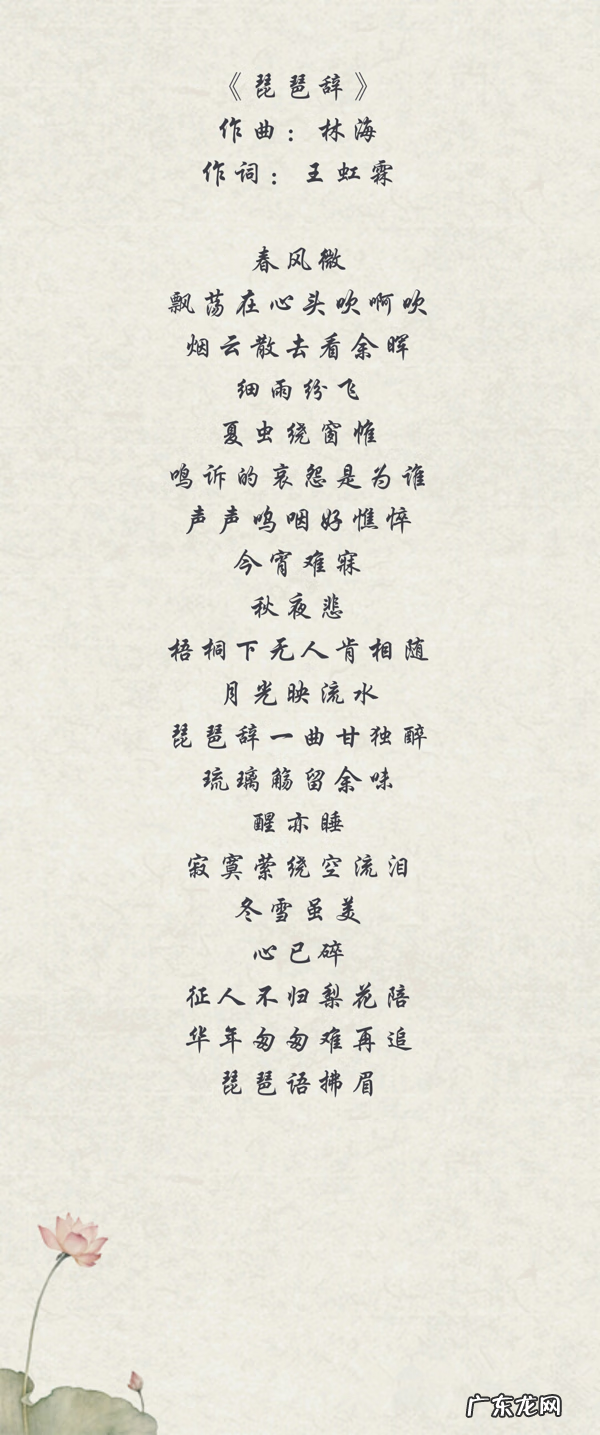 《琵琶辞》
作曲：林海
作词：王虹霖
春风微
飘荡在心头吹啊吹
烟云散去看余晖
细雨纷飞
夏虫绕窗帷
鸣诉的哀怨是为谁
声声呜咽好憔悴
今宵难寐
秋夜悲
梧桐下无人肯相随
月光映流水
琵琶辞一曲甘独醉
琉璃觞留余味
醒亦睡
寂寞萦绕空流泪
冬雪虽美
心已碎
征人不归梨花陪
华年匆匆难再追
琵琶语拂眉
广东龙网